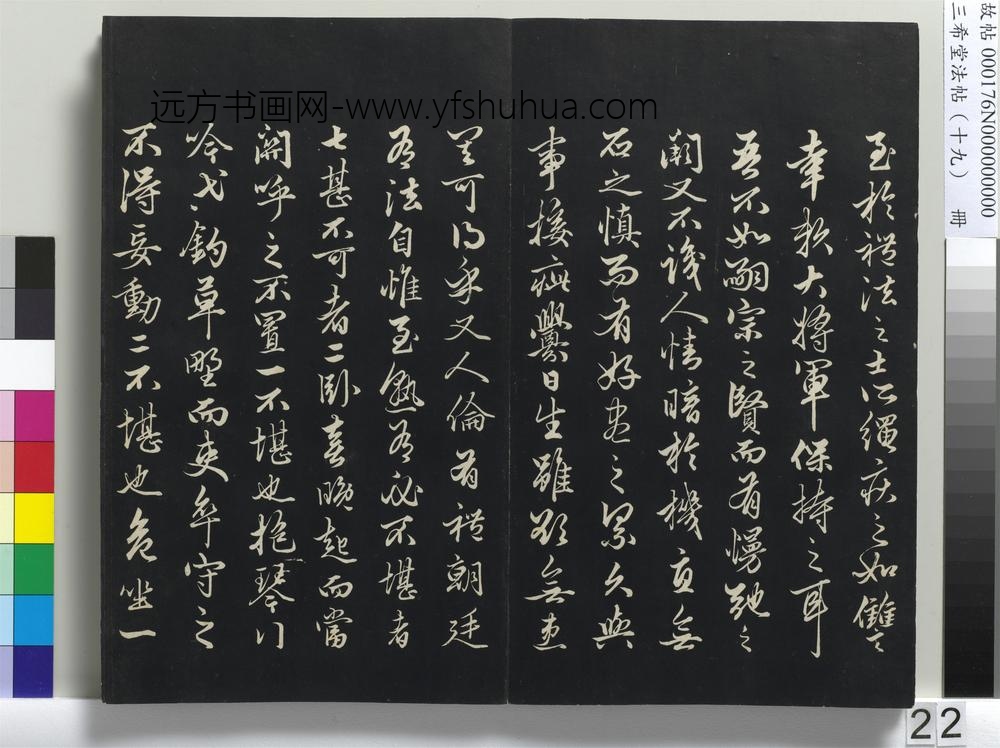 至於禮法之士所繩疾之如讎
幸賴大將軍保持之耳
吾不如嗣宗之賢而有慢弛之
闕又不識人情暗於機宜無
石之慎而有好盡之累久與
事接疵釁日生雖欲無患
其可得乎又人倫有禮朝廷
有法自惟至熟有必不堪者
七甚不可者二卧喜晚起而當
關呼之不置一不堪也抱琴行
吟弋釣草野而吏卒守之
不得妄動二不堪也危坐一
远方书画网-www.yfshuhua.com
故帖 000176N000000000
三希堂法帖（十九） 冊
22